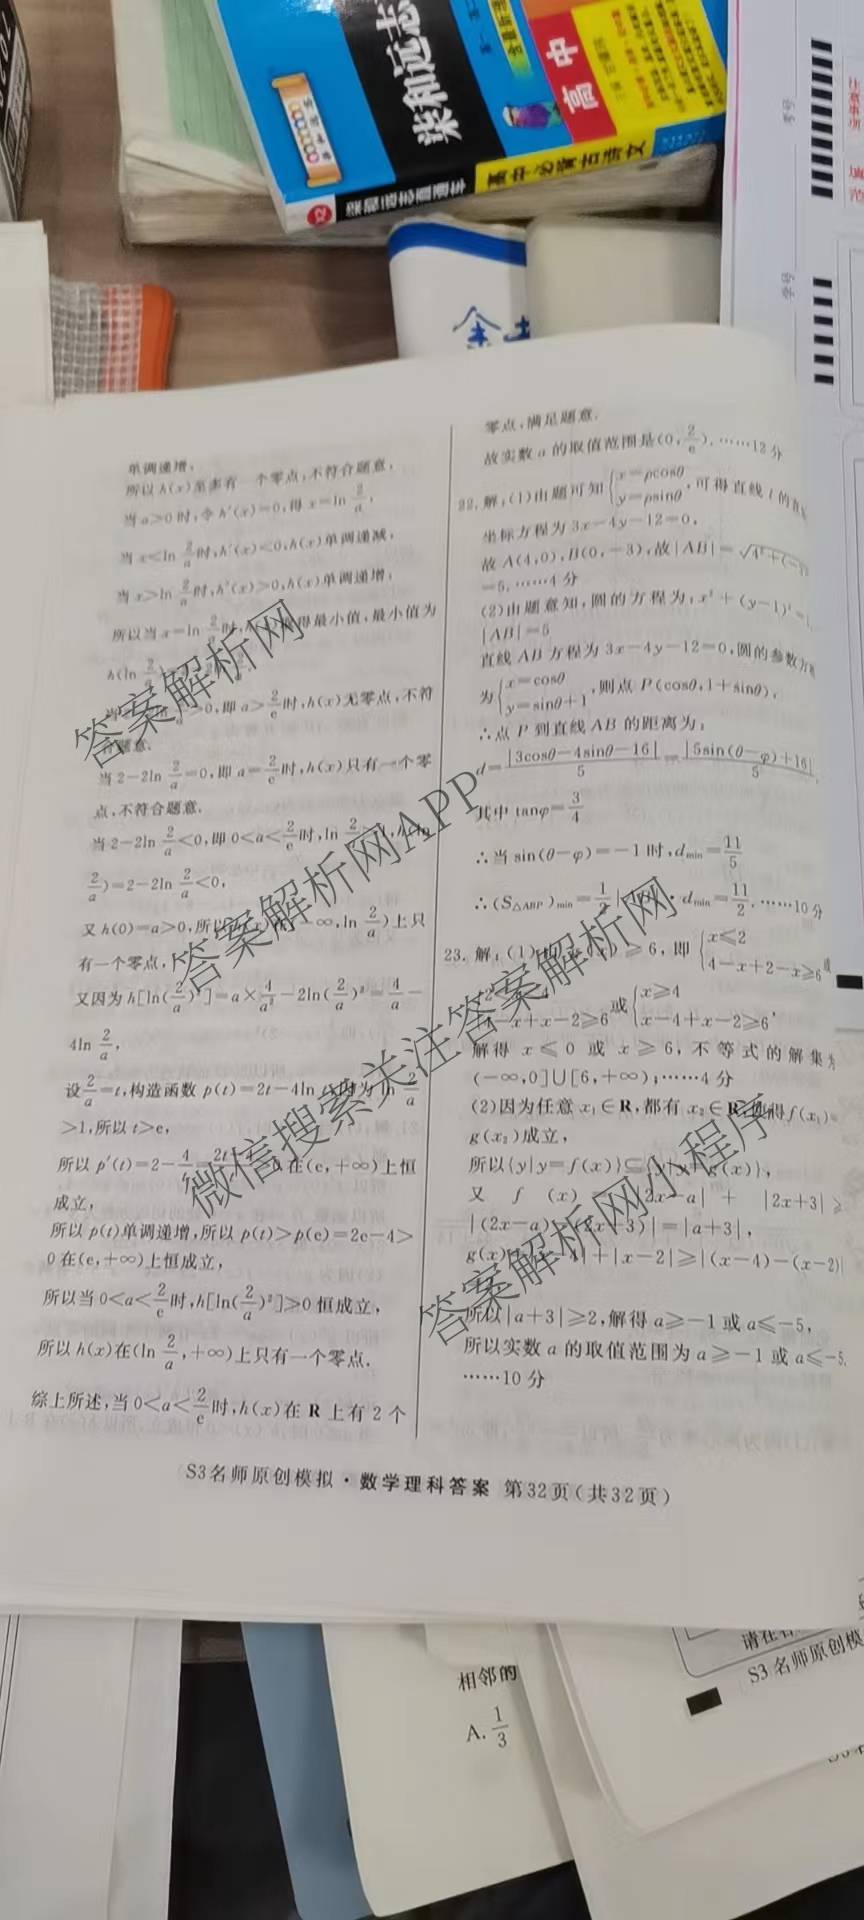 柒和远志
高中
高中必背古诗文
考号
学号
单调递增,
所以h(x)至多有一个零点,不符合题意,
当a>0时,令h′(x)=0,得x=ln 2/a,
当x<ln 2/a时,h′(x)<0,h(x)单调递减,
当x>ln 2/a时,h′(x)>0,h(x)单调递增,
所以当x=ln 2/a时,得最小值,最小值为
h(ln 2/a)
>0,即a>2/e时,h(x)无零点,不符
合题意.
当2-2ln 2/a=0,即a=2/e时,h(x)只有一个零
点,不符合题意.
当2-2ln 2/a<0,即0<a<2/e时,ln 2/a
2/a)=2-2ln 2/a<0,
又h(0)=a>0,所以∞,ln 2/a)上只
有一个零点,
又因为h[ln(2/a)²]=a×4/a²-2ln(2/a)²=4/a-
4ln 2/a,
设2/a=t,构造函数p(t)=2t-4ln t,因为ln 2/a
>1,所以t>e,
所以p′(t)=2-4/t=在(e,+∞)上恒
成立,
所以p(t)单调递增,所以p(t)>p(e)=2e-4>
0在(e,+∞)上恒成立,
所以当0<a<2/e时,h[ln(2/a)²]≥0恒成立,
所以h(x)在(ln 2/a,+∞)上只有一个零点.
综上所述,当0<a<2/e时,h(x)在R上有2个
零点,满足题意.
故实数a的取值范围是(0,2/e).……12分
22.解:(1)由题可知{x=ρcosθ y=ρsinθ,可得直线l的直
坐标方程为3x-4y-12=0,
故A(4,0),B(0,-3),故|AB|=√4²+(-3
=5.……4分
(2)由题意知,圆的方程为:x²+(y-1)²=1,
|AB|=5
直线AB方程为3x-4y-12=0,圆的参数方
为{x=cosθ y=sinθ+1,则点P(cosθ,1+sinθ),
∴点P到直线AB的距离为:
d=|3cosθ-4sinθ-16|/5=|5sin(θ-φ)+16|/5,
其中tanφ=3/4
∴当sin(θ-φ)=-1时,dmin=11/5
∴(S△ABP)min=1/2|AB|·dmin=11/2.……10分
23.解:(1)≥6,即{x≤2 4-x+2-x≥6或
-x+x-2≥6或{x≥4 x-4+x-2≥6,
解得x≤0或x≥6,不等式的解集为
(-∞,0]∪[6,+∞);……4分
(2)因为任意x₁∈R,都有x₂∈R,使得f(x₁)=
g(x₂)成立,
所以{y|y=f(x)}⊆{y|y=g(x)},
又f(x)=|2x-a|+|2x+3|≥
|(2x-a)-(2x+3)|=|a+3|,
g(x)=|x-4|+|x-2|≥|(x-4)-(x-2)|
所以|a+3|≥2,解得a≥-1或a≤-5,
所以实数a的取值范围为a≥-1或a≤-5.
……10分
S3名师原创模拟·数学理科答案 第32页(共32页)
答案解析网
答案解析网APP
微信搜索关注答案解析网
答案解析网小程序
相邻的
A. 1/3
请在
S3名师原创模